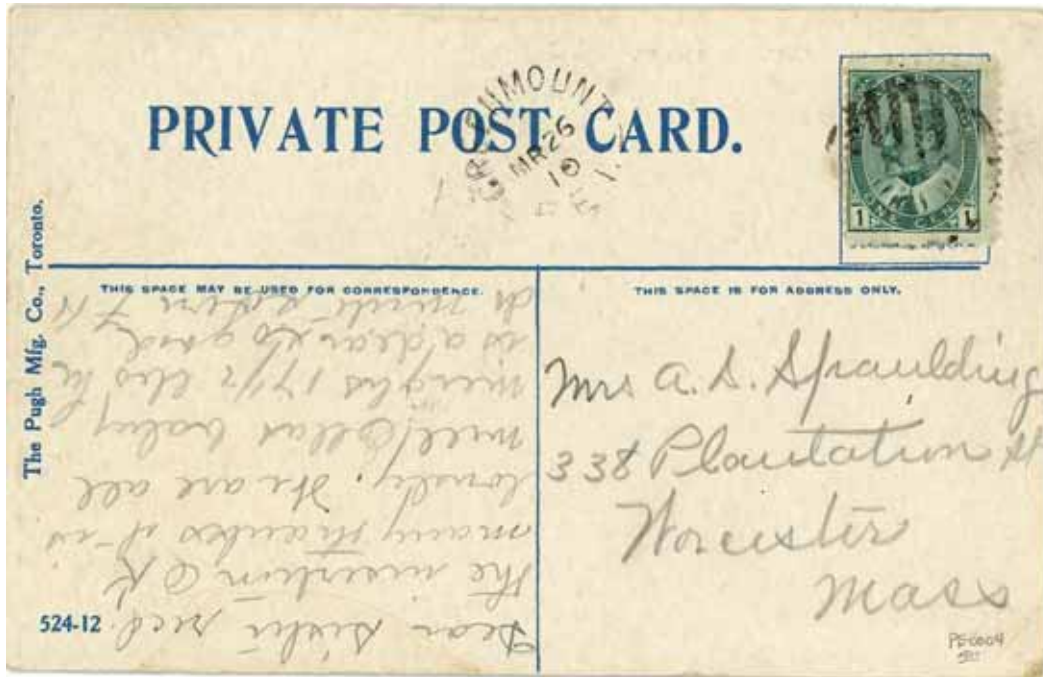 PRIVATE POST CARD.
GREENMOUNT
MR 26
10
The Pugh Mfg. Co., Toronto.
THIS SPACE MAY BE USED FOR CORRESPONDENCE.
Dear Sister recd.
the insertion O K
many thanks it is
lovely. We are all
well. Ellas baby
weighs 17 1/2 lbs he
is a dear so good
524-12
THIS SPACE IS FOR ADDRESS ONLY.
Mrs A. S. Spaulding
338 Plantation St
Worcester
Mass
PE0004
1 1